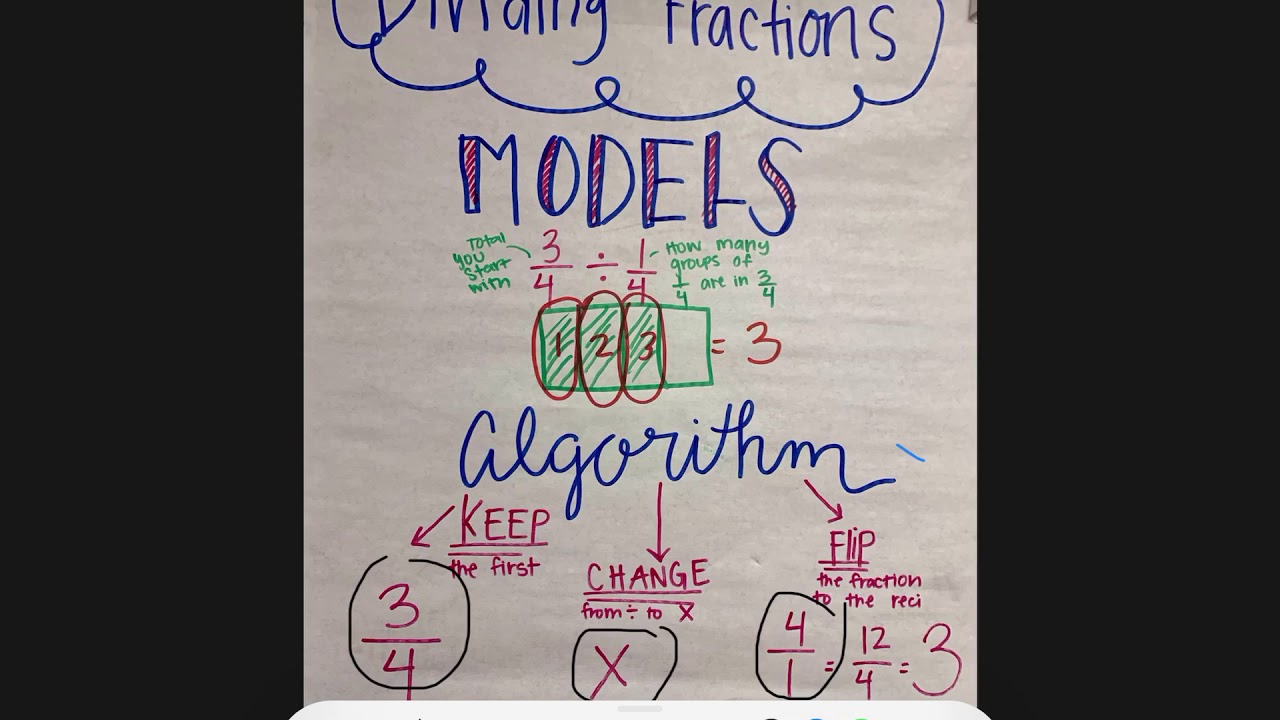 Dividing Fractions
MODELS
Total you start with
3/4 ÷ 1/4
How many
groups of
1/4 are in 3/4
1 2 3 = 3
algorithm
KEEP
the first
CHANGE
from ÷ to x
FliP
the fraction
to the reci
3/4 X 4/1 = 12/4 = 3